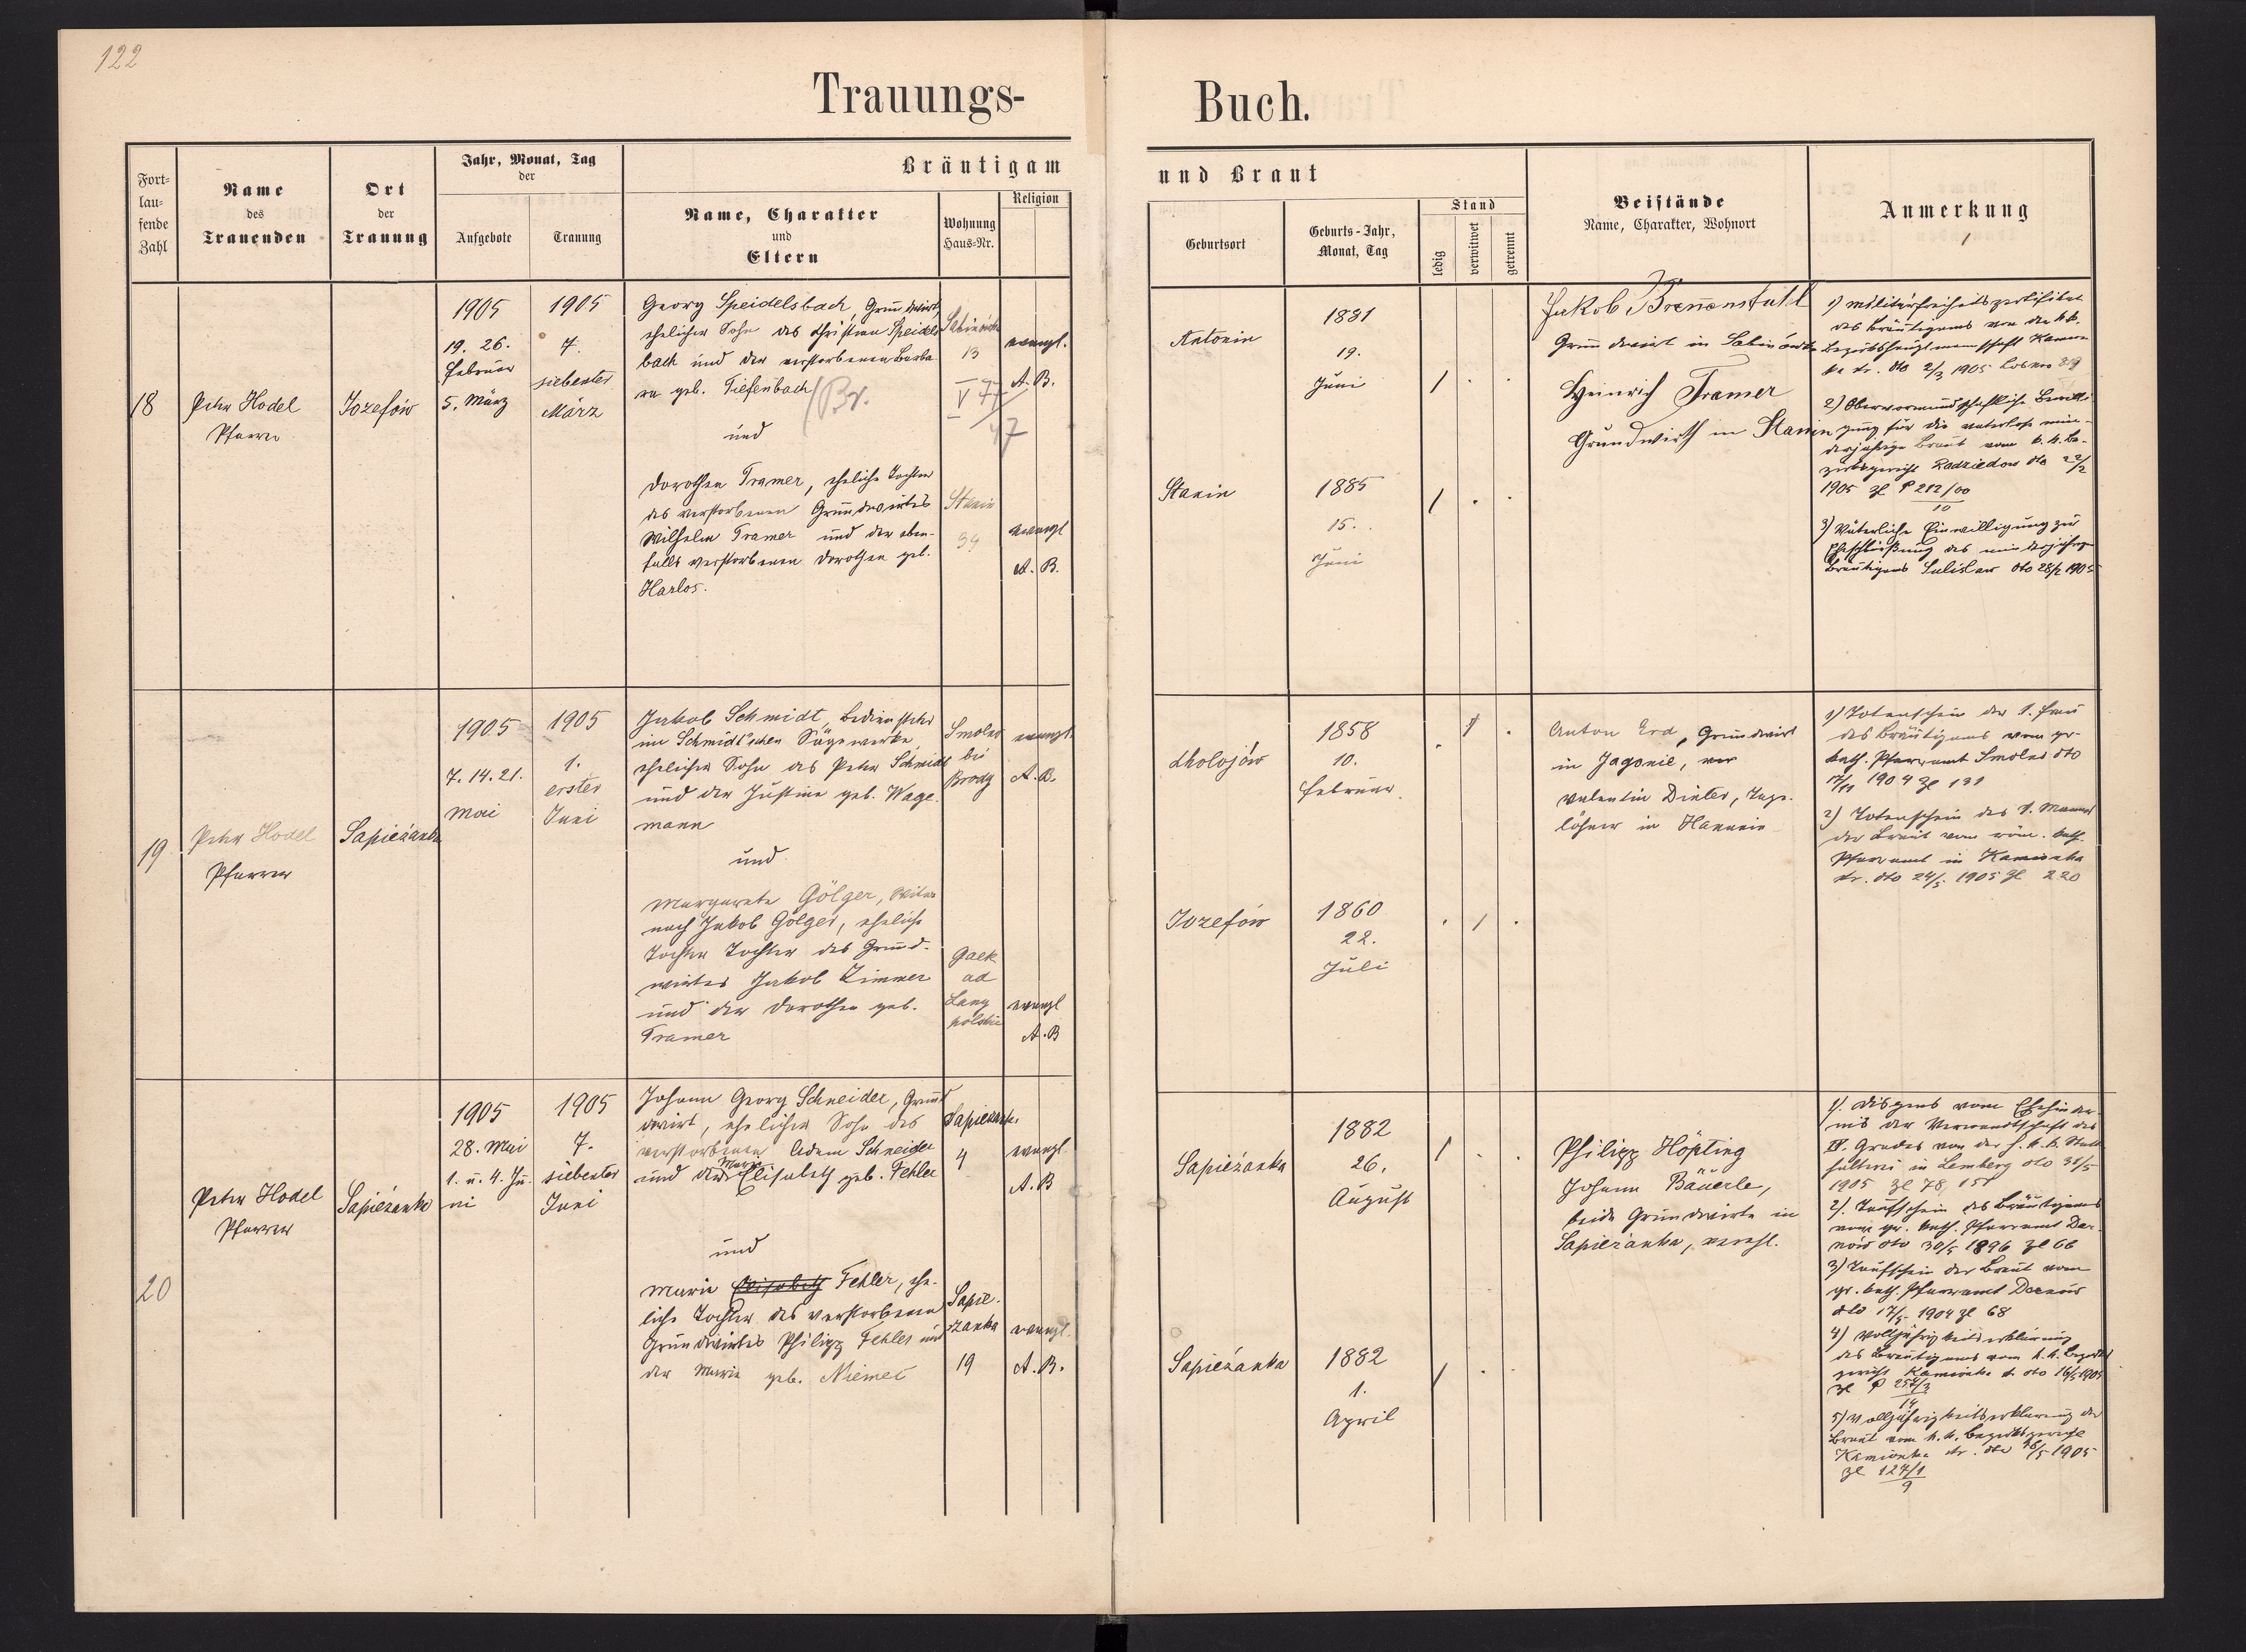 122
Trauungs-
Buch.
Fort-
lau-
fende
Zahl
Name
des
Trauenden
Ort
der
Trauung
Jahr, Monat, Tag
der
Aufgebote
Trauung
Bräutigam
Name, Charakter
und
Eltern
Wohnung
Haus-Nr.
Religion
und Braut
Geburtsort
Geburts-Jahr,
Monat, Tag
Stand
ledig
verwitwet
getrennt
Beistände
Name, Charakter, Wohnort
Anmerkung
18
Peter Hodel
Pfarrer
Jozefów
1905
19. 26.
Februar
5. März
1905
7.
siebenter
März
Georg Speidelsbach, Grundwirt,
ehelicher Sohn des Christian Speidels
bach und der verstorbenen Barba
ra geb. Tiefenbach
und
Dorothea Tramer, eheliche Tochter
des verstorbenen Grundwirtes
Wilhelm Tramer und der eben-
falls verstorbenen Dorothea geb.
Harlos.
13
evangl.
A. B.
Stanin
34
evangl
A. B.
Antonin
1881
19.
Juni
Stanin
1885
15.
Juni
Jakob Brennenstuhl
Grundwirt in
Heinrich Tramer
Grundwirth in Stanin
1) Militärfreiheitszertifikat
des Bräutigams von der k.k.
Bezirkshauptmannschaft Kamion
ka str. dto 2/3 1905
2) Obervormundschaftliche Bewilli
gung für die vaterlose min-
derjährige Braut vom k. k. Be-
zirksgericht Radziechow dto 22/2
1905 Zl P 212/00
10
3) Väterliche Einwilligung zur
Eheschließung des minderjährigen
Bräutigams dto 28/2 1905
19
Peter Hodel
Pfarrer
Sapieżanka
1905
7. 14. 21.
Mai
1905
1.
erster
Juni
Jakob Schmidt, Bediensteter
im Schmidt'schen Sägewerke,
ehelicher Sohn des Peter Schmidt
und der Justine geb. Wage
mann
und
Margarete Gölger, Witwe
nach Jakob Gölger, eheliche
Tochter Tochter des Grund-
wirtes Jakob Zimmer
und der Dorothea geb.
Tramer
Smolno
bei
Brody
evangl.
A. B.
ad
evangl
A. B
Cholojów
1858
10.
Februar.
Jozefów
1860
22.
Juli
Anton Erd, Grundwirt
in Jagonie,
Valentin Dinter, Tage-
löhner in Hanunin
1) Totenschein der 1. Frau
des Bräutigams vom gr-
kath. Pfarramt Smolno dto
17/11 1904 Zl 131
2) Totenschein des 1. Mannes
der Braut vom röm. kath.
Pfarramt in Kamionka
str. dto 24/5 1905 Zl 220
20
Peter Hodel
Pfarrer
Sapieżanka
1905
28. Mai
1. u. 4. Ju-
ni
1905
7.
siebenter
Juni
Johann Georg Schneider, Grund
wirt, ehelicher Sohn des
verstorbenen Adam Schneider
und der Marie Elisabeth geb. Fehler
und
Marie Elisabeth Fehler, ehe-
liche Tochter des verstorbenen
Grundwirtes Philipp Fehler und
der Marie geb. Niemec
Sapieżanka
4
evangl.
A. B
Sapie-
żanka
19
evangl.
A. B.
Sapieżanka
1882
26.
August
Sapieżanka
1882
1.
April
Philipp Höpting
Johann Bäuerle,
beide Grundwirte in
Sapieżanka, verehl.
1). Dispens vom Ehehinder-
nis der Verwandtschaft des
IV. Grades von der h. k. k. Statt
halterei in Lemberg dto 31/5
1905 Zl 78,151
2). Taufschein des Bräutigams
vom gr. kath. Pfarramt Der-
nów dto 30/5 1896 Zl 66
3) Taufschein der Braut vom
gr. kath. Pfarramt Dernów
dto 17/5 1904 Zl 68
4) Volljährigkeitserklärung
des Bräutigams vom k. k. Bezirks
gericht Kamionka str. dto 16/5 1905
Zl P 254/3
14
5) Volljährigkeitserklärung der
Braut vom k. k. Bezirksgericht
Kamionka str. dto 16/5 1905
Zl 127/1
9